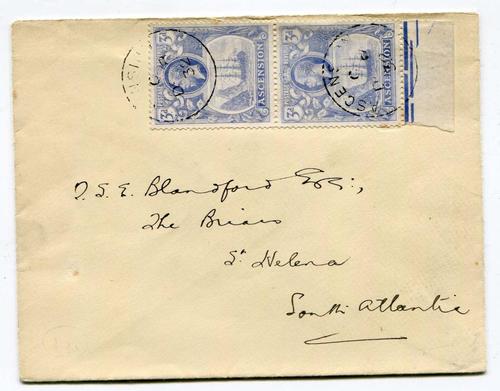 3d ASCENSION 3d ASCENSION
ASCENSION
D.S.E. Blandford Esq:,
The Briars
St Helena
South Atlantic